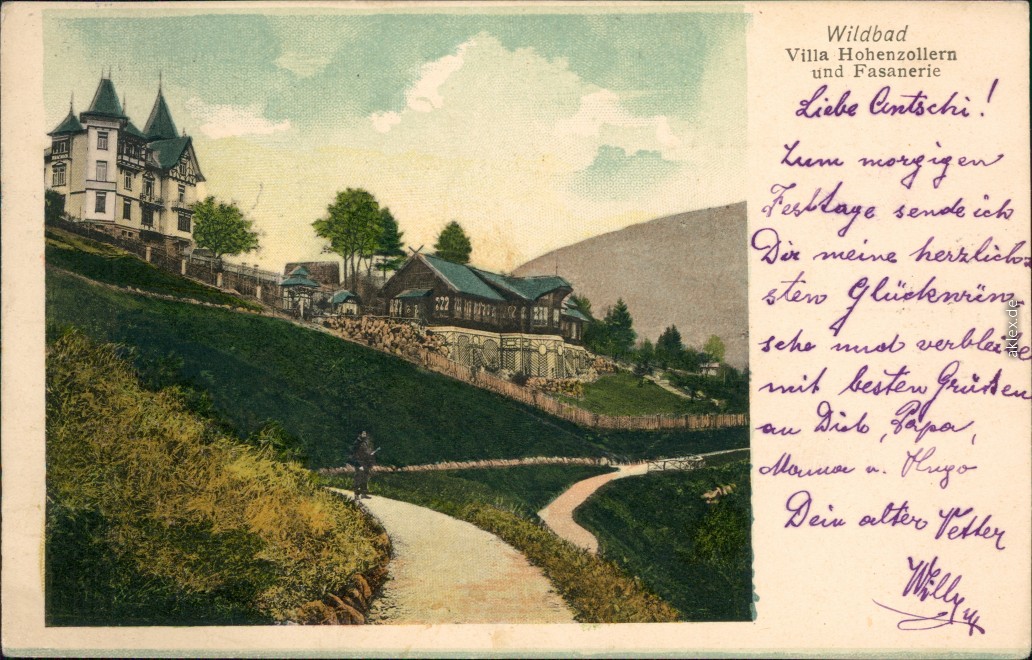 Wildbad
Villa Hohenzollern
und Fasanerie
Liebe Antschi!
Zum morgigen
Festtage sende ich
Dir meine herzlich-
sten Glückwün
sche und verbleibe
mit besten Grüssen
an Dich, Papa,
Mama u. Hugo
Dein alter Vetter
Willy
aklex.de